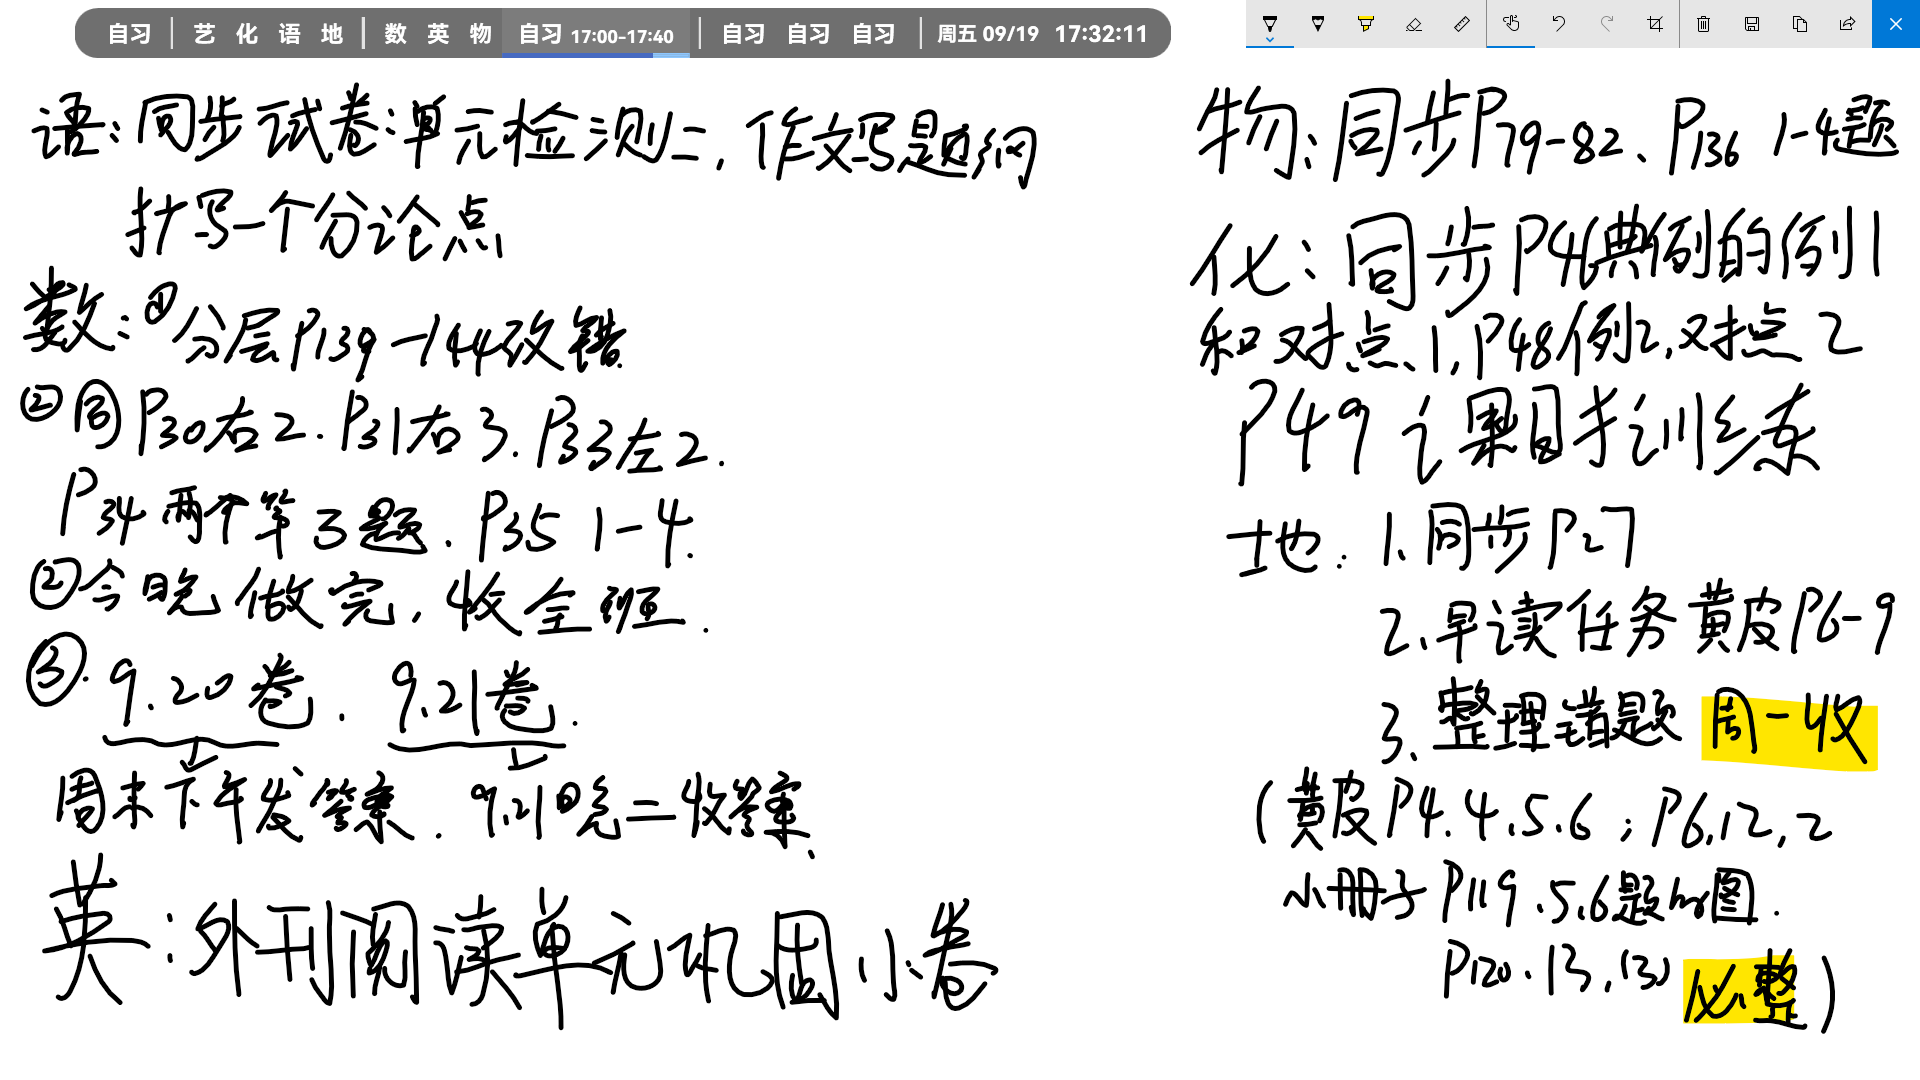 自习 | 艺 化 语 地 | 数 英 物 自习 17:00-17:40 | 自习 自习 自习 | 周五 09/19 17:32:11
语:同步试卷:单元检测二,作文写题纲
抄写一个分论点
数:①分层P139-144改错.
②同P30右2.P31右3.P33左2.
P34两个第3题.P35 1-4.
②今晚做完,收全班.
③.9.20卷.9.21卷.
周末下午发答案.9.21日晚二收答案.
英:外刊阅读单元巩固小卷
物:同步P79-82、P136 1-4题
化:同步P46典例的例1
和对点、1,P48例2,对点2
P49 课时训练
地:1、同步P27
2、早读任务黄皮P6-9
3、整理错题 周一收
(黄皮P4.4.5.6;P6,12,2
小册子P119.5,6题的图.
P120.13,(3)必整)